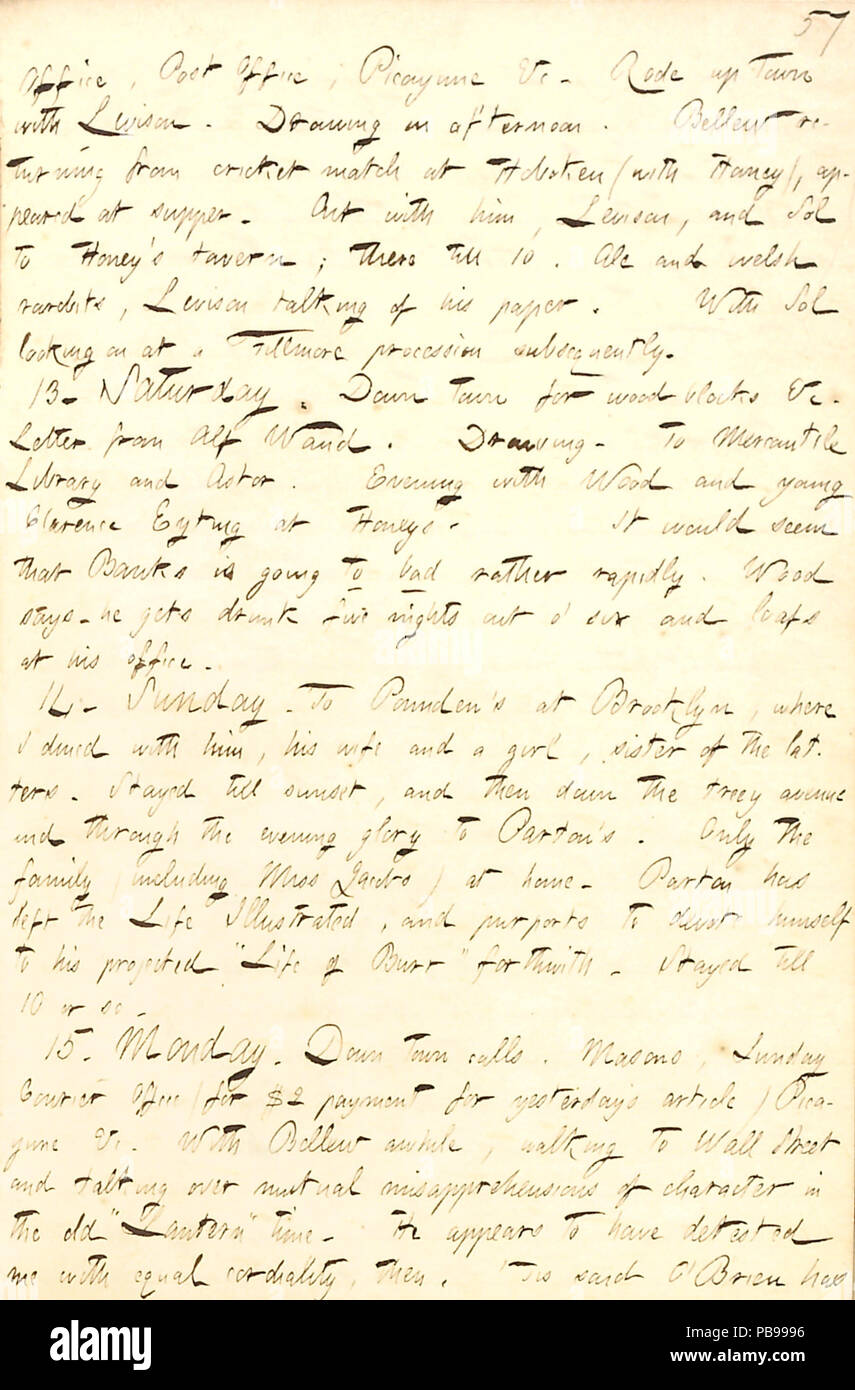 57
Office, Post Office, Picayune &c. Rode up town
with Levison. Drawing in afternoon. Bellew re-
turning from cricket match at Hoboken (with Haney), ap-
peared at supper. Out with him, Levison, and Sol
to Honey's tavern; there till 10. Ale and welsh
rarebits, Levison talking of his paper. With Sol
looking on at a Fillmore procession subsequently.
13. Saturday. Down town for wood blocks &c.
Letter from Alf Waud. Drawing. To Mercantile
Library and Astor. Evening with Wood and young
Clarence Eyting at Honey's. It would seem
that Banks is going to bad rather rapidly. Wood
says he gets drunk five nights out o' six and loafs
at his office.
14. Sunday. To Pounden's at Brooklyn, where
I dined with him, his wife and a girl, sister of the lat-
ters. Stayed till sunset, and then down the treey avenue
and through the evening glory to Parton's. Only the
family (including Miss Jacobs) at home. Parton has
left the Life Illustrated, and purports to devote himself
to his projected "Life of Burr" forthwith. Stayed till
10 or so.
15. Monday. Down town calls. Masons, Sunday
Courier Office (for $2 payment for yesterday's article) Pica-
yune &c. With Bellew awhile, walking to Wall Street
and talking over mutual misapprehensions of character in
the old "Lantern" time. He appears to have detested
me with equal cordiality, then. 'Tis said O'Brien has
alamy
alamy
Image ID: PB9996
www.alamy.com